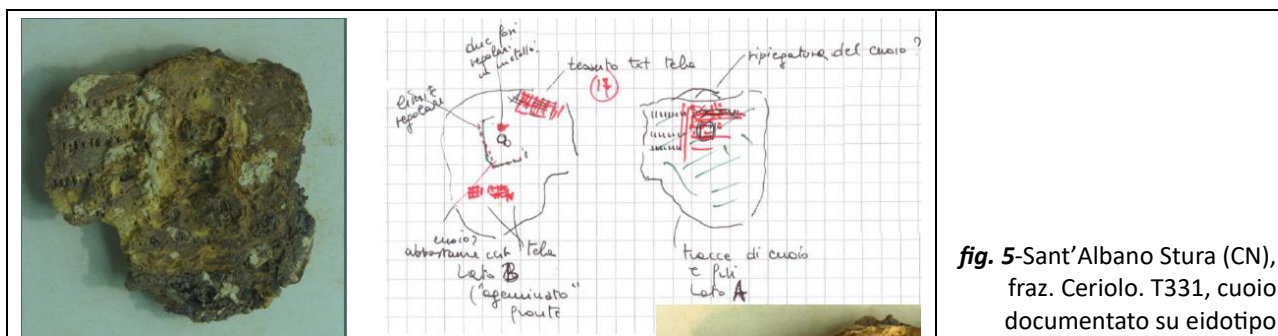 due fori
regolari
in metallo
tessuto txt tela
17
limite
regolare
ripiegatura del cuoio?
cuoio?
tela
Lato B
("ageminato"
fronte
tracce di cuoio
e fili
Lato A
fig. 5-Sant'Albano Stura (CN),
fraz. Ceriolo. T331, cuoio
documentato su eidotipo